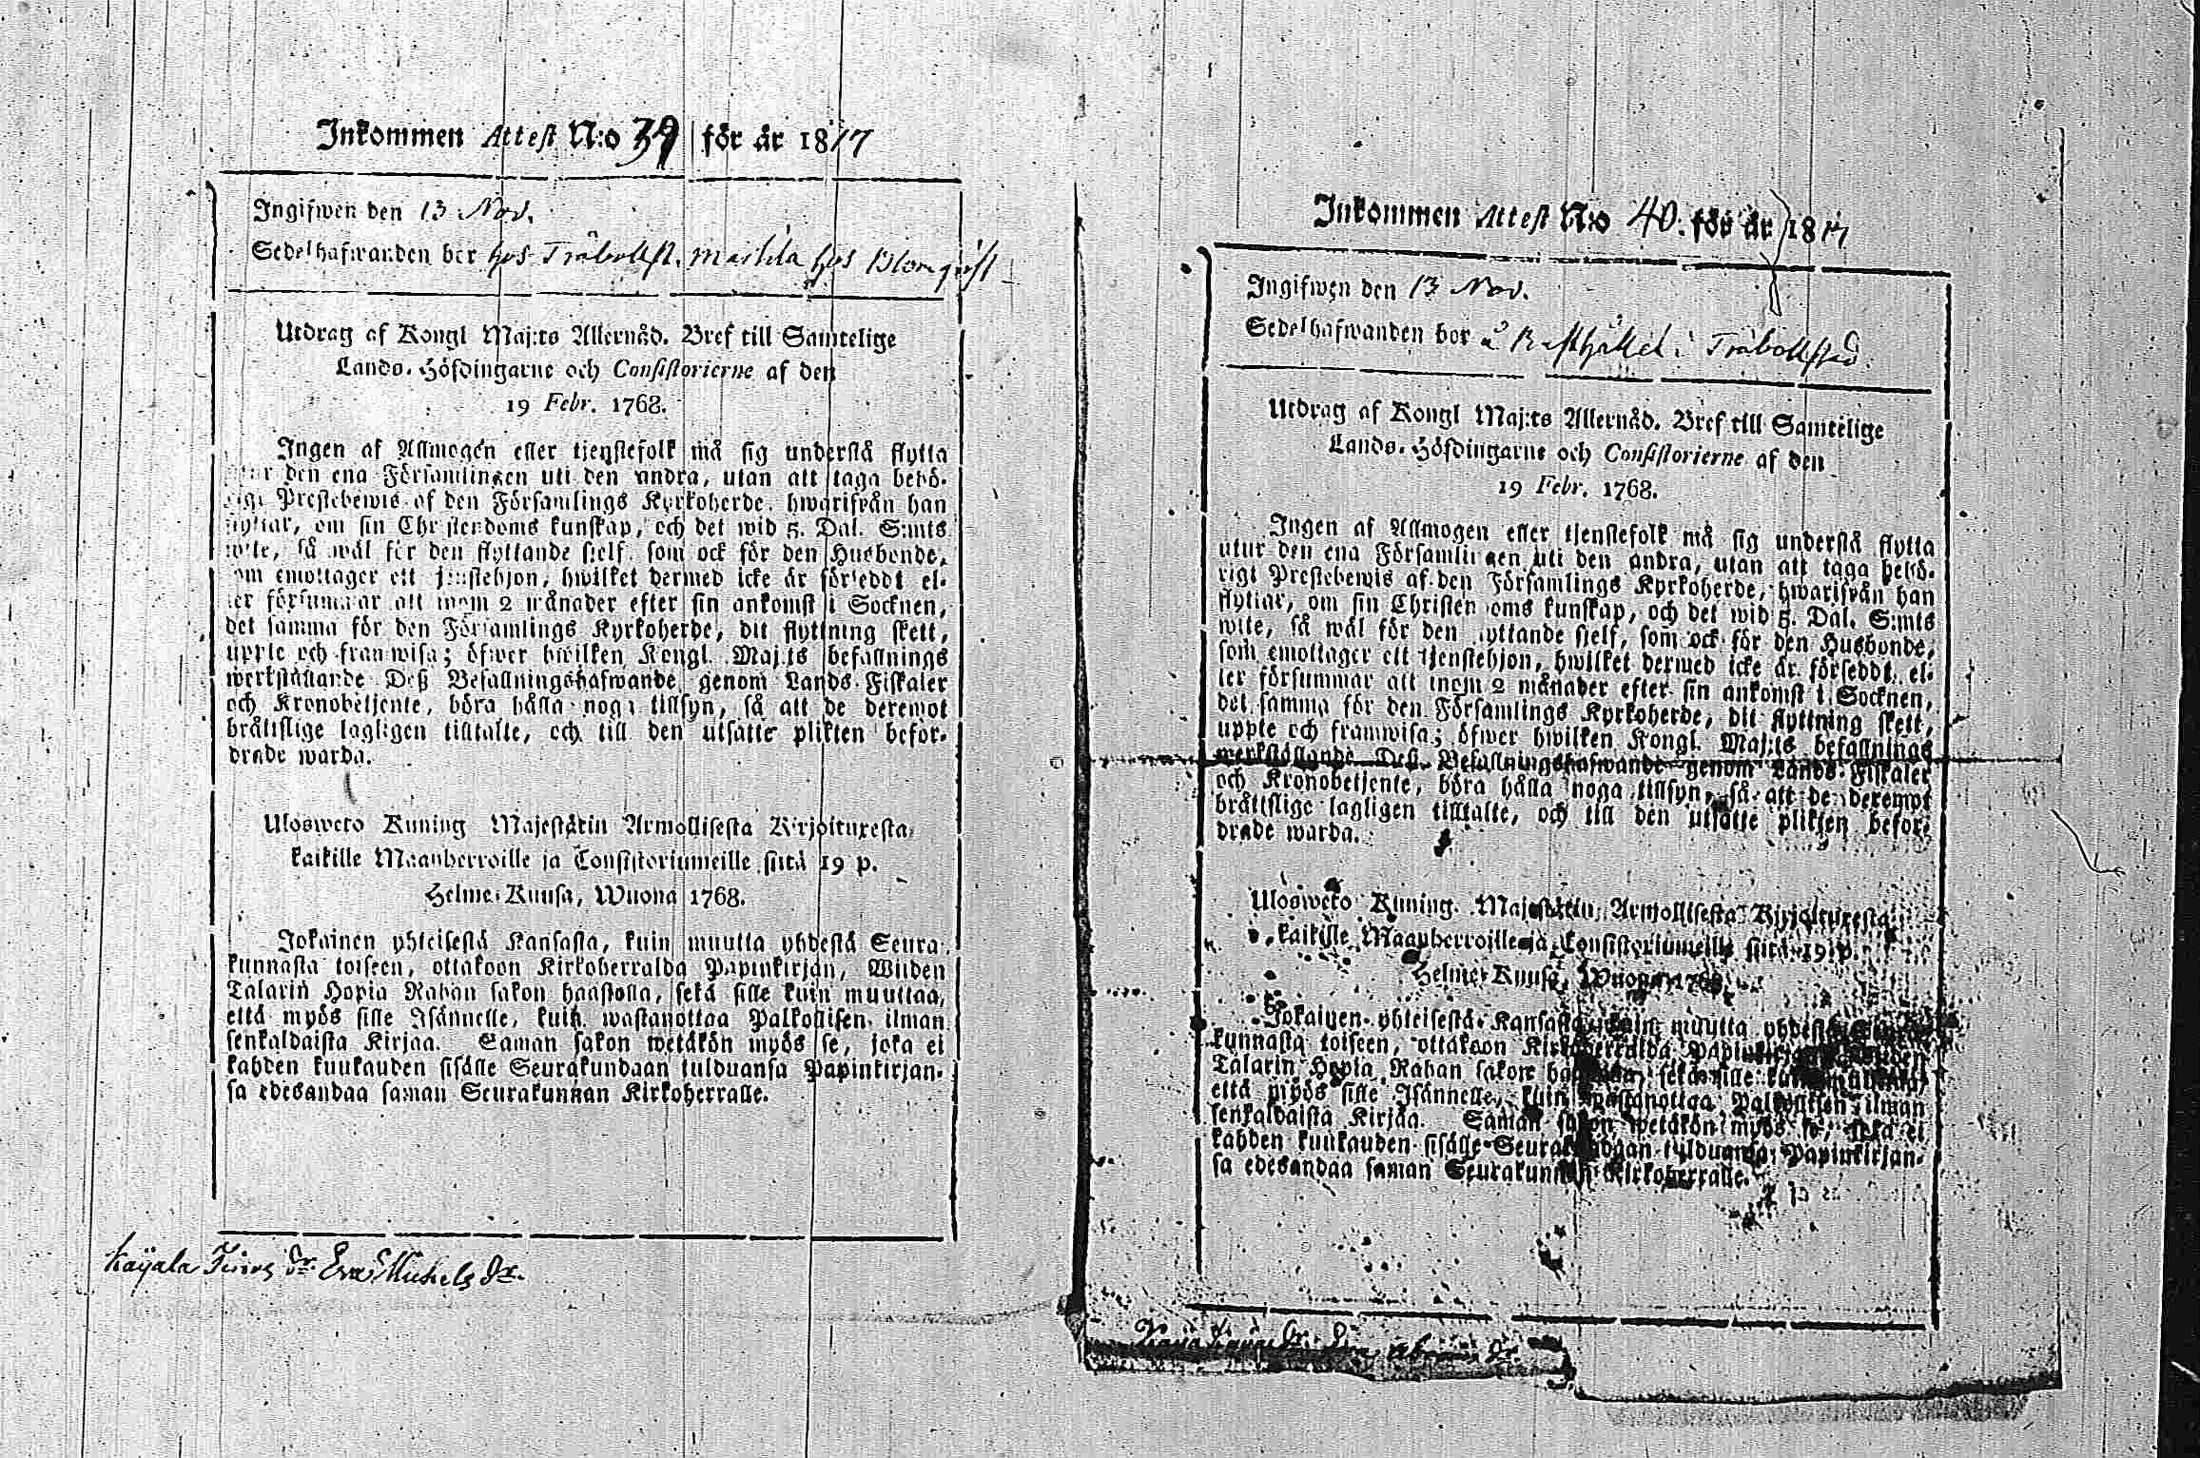 Inkommen Attest N:o 39 för år 1817
Ingifwen den 13 Nov.
Sedelhafwanden bor hos Träbollst. hos Blomqvist
Utdrag af Kongl Maj:ts Allernåd. Bref till Samtelige
Lands-Höfdingarne och Consistorierne af den
19 Febr. 1768.
Ingen af Allmogen eller tjenstefolk må sig understå flytta
utur den ena Församlingen uti den andra, utan att taga behö-
rigt Prestebewis af den Församlings Kyrkoherde, hwarifrån han
flyttar, om sin Christendoms kunskap, och det wid 5. Dal. S:mts
wite, så wäl för den flyttande sielf, som ock för den Husbonde,
som emottager ett tjenstehjon, hwilket dermed icke är försedd el-
ler försummar att inom 2 månader efter sin ankomst i Socknen,
det samma för den Församlings Kyrkoherde, dit flyttning skett,
uppte och framwisa; öfwer hwilken Kongl. Maj:ts befallnings
werkställande Deß Befallningshafwande genom Lands-Fiskaler
och Kronobetjente, böra hålla noga tillsyn, så att de deremot
bråttslige lagligen tilltalte, och till den utsatte plikten befor-
drade warda.
Uloswеto Kuning Majestätin Armollisesta Kirjoituxesta
kaikille Maanherroille ja Consistoriumeille siitä 19 p.
Helme-Kuusa, Wuona 1768.
Jokainen yhteisestä Kansasta, kuin muutta yhdestä Seura-
kunnasta toiseen, ottakoon Kirkoherralda Papinkirjan, Wiiden
Talarin Hopia Rahan sakon haastolla, sekä sille kuin muuttaa,
että myös sille Isännelle, kuin wastanottaa Palkollisen ilman
senkaldaista Kirjaa. Saman sakon wetäkön myös se, joka ei
kahden kuukauden sisälle Seurakundaan tulduansa Papinkirjan-
sa edesandaa saman Seurakunnan Kirkoherralle.
Eva Michels dr.
Inkommen Attest N:o 40. för år 1817
Ingifwen den 13 Nov.
Sedelhafwanden bor å i Träbollstad.
Utdrag af Kongl Maj:ts Allernåd. Bref till Samtelige
Lands-Höfdingarne och Consistorierne af den
19 Febr. 1768.
Ingen af Allmogen eller tjenstefolk må sig understå flytta
utur den ena Församlingen uti den andra, utan att taga behö-
rigt Prestebewis af den Församlings Kyrkoherde, hwarifrån han
flyttar, om sin Christendoms kunskap, och det wid 5. Dal. S:mts
wite, så wäl för den flyttande sielf, som ock för den Husbonde,
som emottager ett tjenstehjon, hwilket dermed icke är försedd, el-
ler försummar att inom 2 månader efter sin ankomst i Socknen,
det samma för den Församlings Kyrkoherde, dit flyttning skett,
uppte och framwisa; öfwer hwilken Kongl. Maj:ts befallnings
werkställande Deß Befallningshafwande genom Lands-Fiskaler
och Kronobetjente, böra hålla noga tillsyn, så att de deremot
bråttslige lagligen tilltalte, och till den utsatte plikten befor-
drade warda.
Ulosweto Kuning Majestätin Armollisesta Kirjoituxesta
kaikille Maanherroille ja Consistoriumeille siitä 19 p.
Helme-Kuusa, Wuona 1768.
Jokainen yhteisestä Kansasta, kuin muutta yhdestä
kunnasta toiseen, ottakoon Kirkoherralda Papinkirjan, Wiiden
Talarin Hopia Rahan sakon sekä sille kuin muuttaa,
että myös sille Isännelle, kuin wastanottaa Palkollisen ilman
senkaldaista Kirjaa. Saman sakon wetäkön myös se, joka ei
kahden kuukauden sisälle Seurakundaan tulduansa Papinkirjan-
sa edesandaa saman Seurakunnan Kirkoherralle.